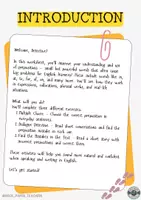 INTRODUCTION
Welcome, Detective!
In this worksheet, you'll improve your understanding and use
of prepositions — small but powerful words that often cause
big problems for English learners! These include words like in,
at, to, for, of, and many more. You'll see how they work
in expressions, collocations, phrasal verbs, and real-life
situations.
What will you do?
You'll complete three different exercises:
1. Multiple Choice – Choose the correct preposition in
everyday sentences.
2. Dialogue Detective – Read short conversations and find the
preposition mistake in each one.
3. Find the Mistakes in the Text – Read a short story with
incorrect prepositions and correct them.
These activities will help you sound more natural and confident
when speaking and writing in English.
Let's get started!